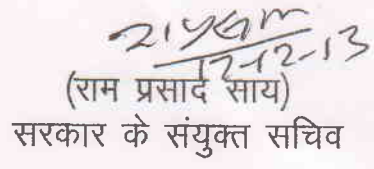 12-12-13
(राम प्रसाद साय)
सरकार के संयुक्त सचिव